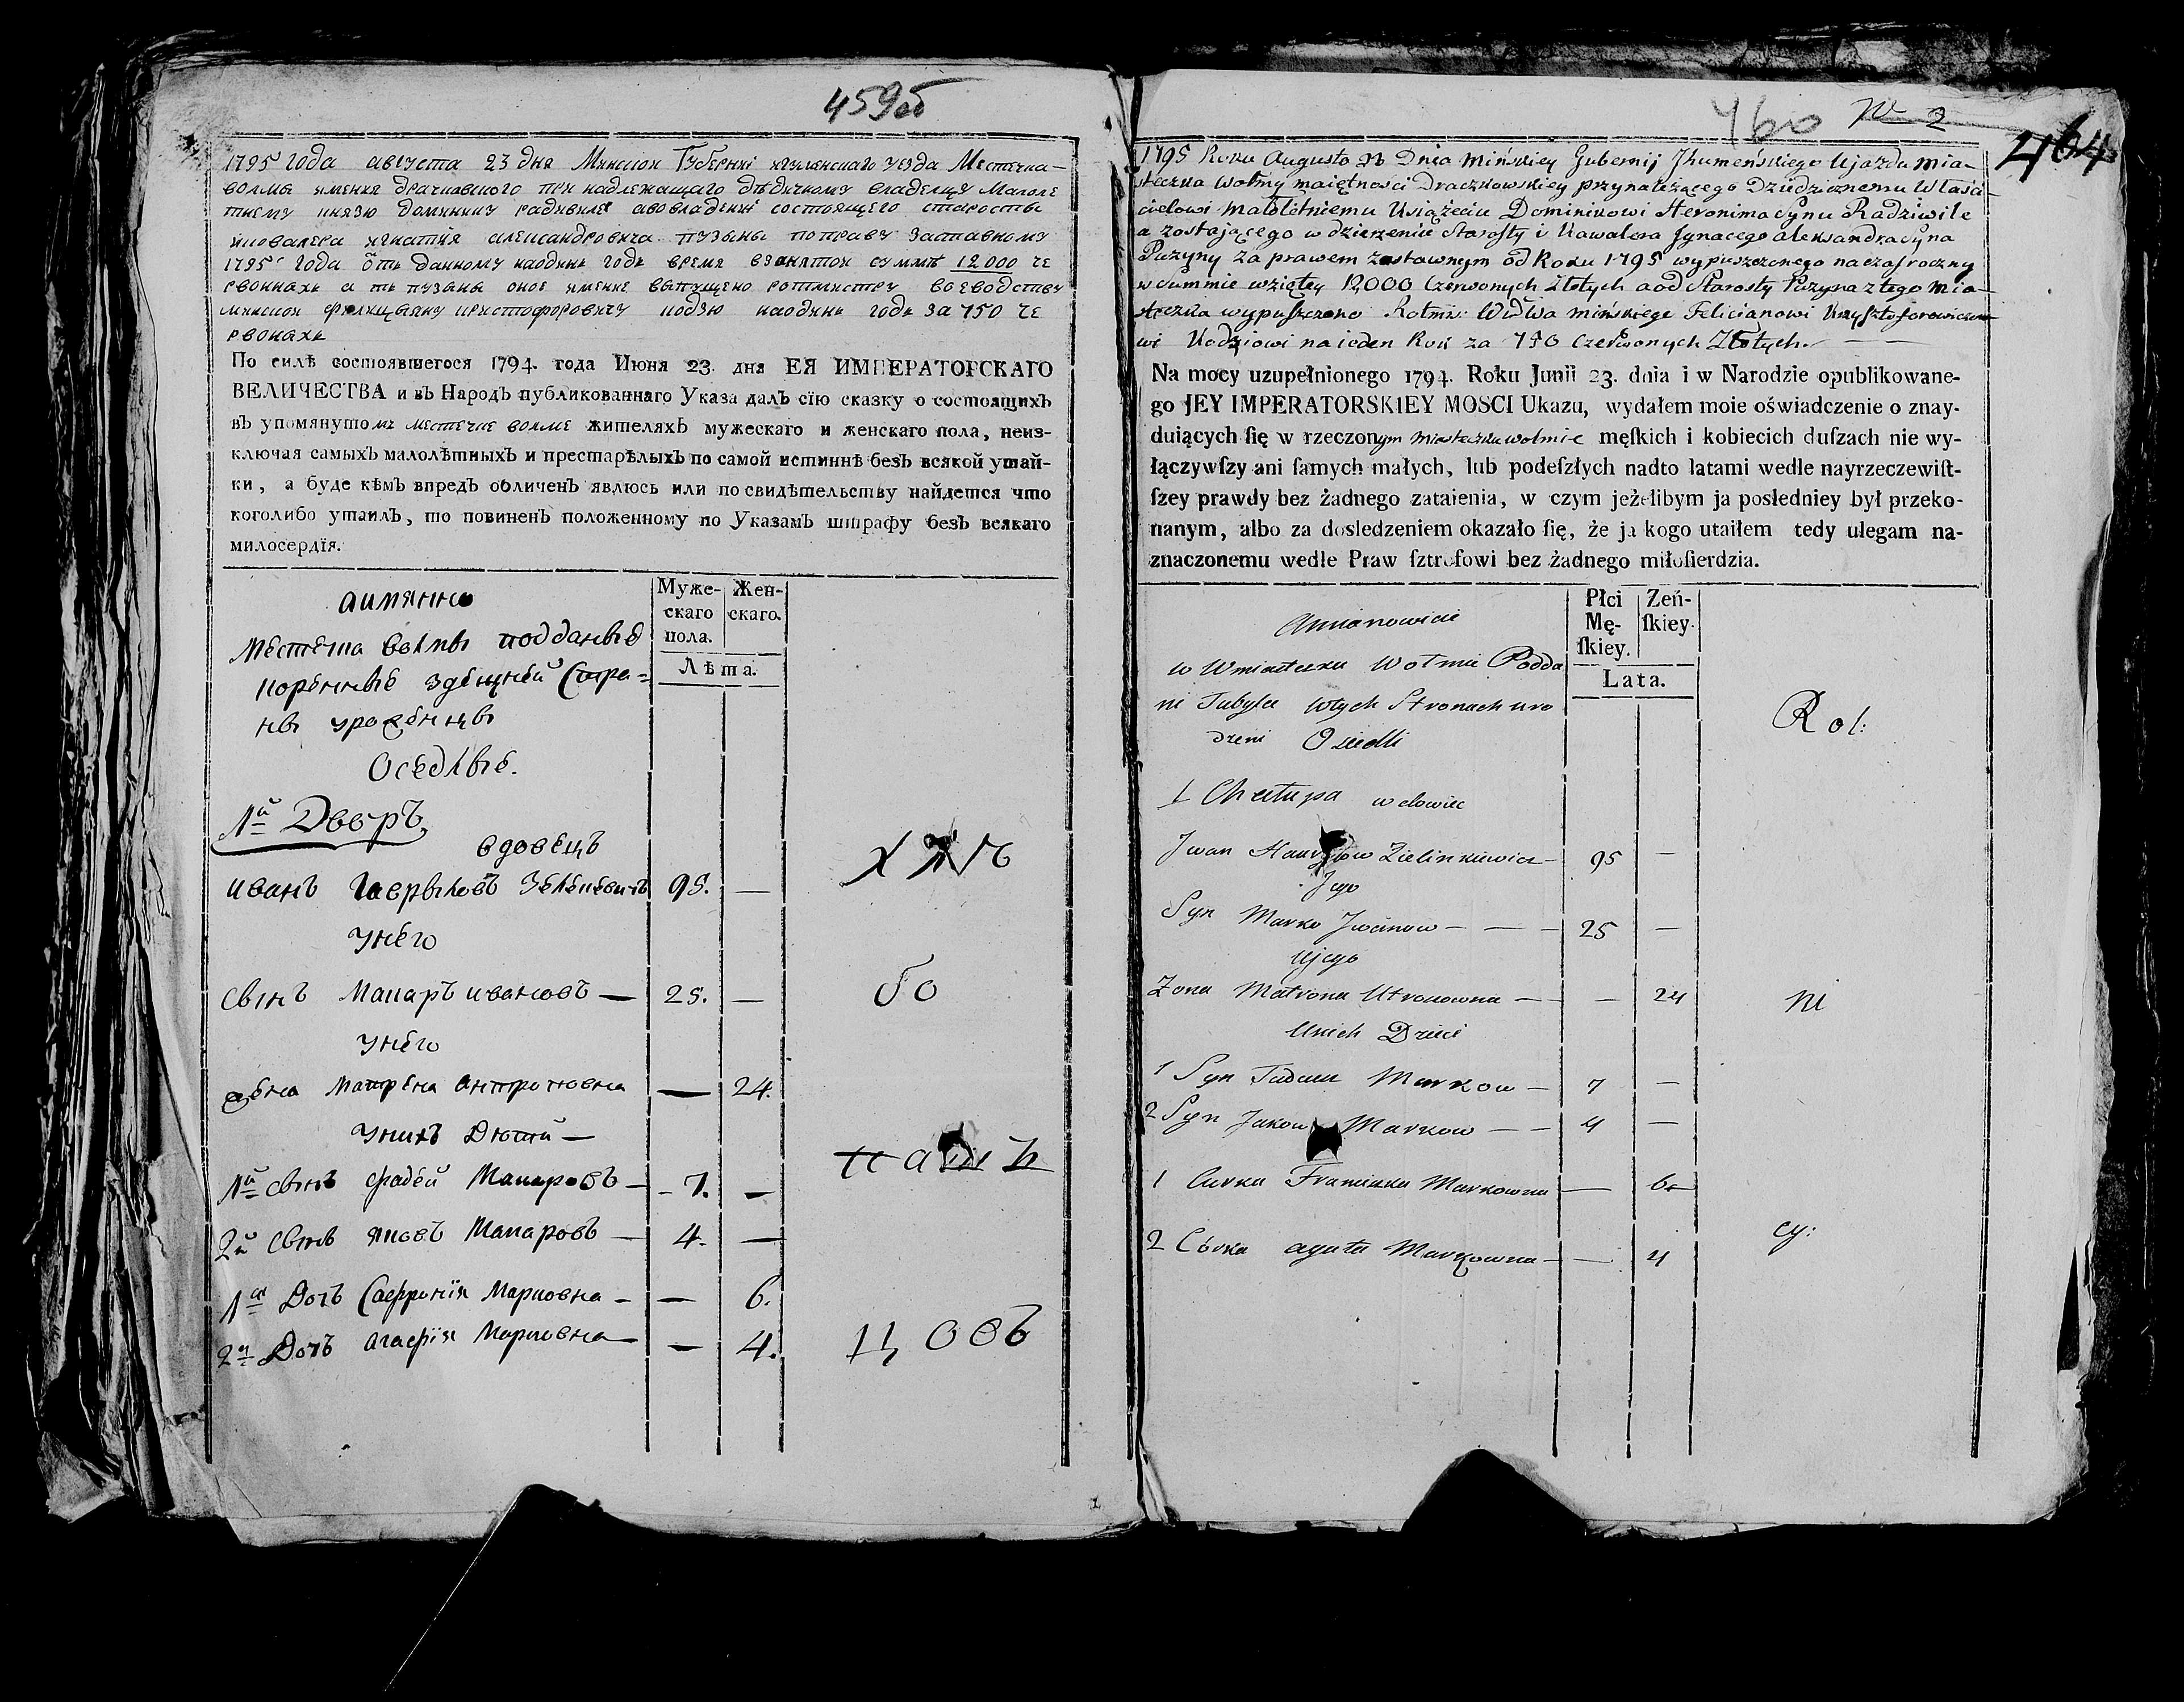 459об
1795 года августа 23 дня Минской Губернiи игуменскаго уезда Местечка
волмы имения драчковского принадлежащаго дѣдичному владелцу Малоле
тнему князю доминику радивиле авовладенiи состоящего старосты
иковалера игнатия александровича пузыны поправу заставному
1795 года отъ данному наодинъ годъ время взанятой суммѣ 12000 че
рвонныхъ а тъ пузыны оное имение выпущено ротмистру воеводства
минской фелицыяну христофоровичу кодзю наодинъ годъ за 750 че
рвонахъ
По силѣ состоявшегося 1794. года Июня 23. дня ЕЯ ИМПЕРАТОРСКАГО
ВЕЛИЧЕСТВА и въ Народъ публикованнаго Указа далъ сїю сказку о состоящихъ
въ упомянутомъ местечке волме жителяхъ мужескаго и женскаго пола, неиз-
ключая самыхъ малолѣтныхъ и престарѣлыхъ по самой истиннѣ безъ всякой утай-
ки, а буде кѣмъ впредъ обличенъ явлюсь или по свидѣтельству найдется что
коголибо утаилъ, то повиненъ положенному по Указамъ штрафу безъ всякаго
милосердїя.
аимянно
Местечка волмы подданые
кореннье здешней Стра=
ны уроженцы
Оседлые.
Муже-
скаго
пола.
Жен-
скаго.
Лѣта.
1й Дворъ
вдовецъ
иванъ Гаврыловъ Зеленевичъ 95. —
унего
сынъ Макаръ ивановъ — 25. —
унего
жена Матрена антроповна — 24.
унихъ Дѣти —
1й сынъ фадей Макаровъ — 7. —
2й сынъ яковъ Макаровъ — 4. —
1я Дочъ Сафронiя Марковна — — 6.
2я Дочъ агафiя Марковна — — 4.
хлѣ
бо
пашъ
цовъ
460 N 2
464
1795 Roku Augusta 23 Dnia Mińskiey Gubernij Jhumeńskiego Ujazdu mia-
steczka Wołmy maiętnosci Draczkowskiey przynależącego Dziedzicznemu Własci-
cielowi małoletniemu Xiążęciu Dominikowi Heronima Synu Radziwile
a zostającego w dzierzeniu Starosty i Kawalera Jgnacego alexandra Syna
Puzyny za prawem zastawnym od Roku 1795 wypuszczonego na czas roczny
w summie wziętey 12000 Czerwonych złotych a od Starosty Puzyna z tego mia-
steczka wypuszczono Rotmis: Wdwa mińskiego Felicianowi Krzysztoforowiczo-
wi Kodziowi na ieden Rok za 750 Czerwonych Złotych.
Na mocy uzupełnionego 1794. Roku Junii 23. dnia i w Narodzie opublikowane-
go JEY IMPERATORSKIEY MOSCI Ukazu, wydałem moie oświadczenie o znay-
duiących ſię w rzeczonym miasteczku wołmie męſkich i kobiecich duſzach nie wy-
łączywſzy ani ſamych małych, lub podeſzłych nadto latami wedle nayrzeczewiſt-
ſzey prawdy bez żadnego zataienia, w czym jeżelibym ja posledniey był przeko-
nanym, albo za dosledzeniem okazało ſię, że ja kogo utaiłem tedy ulegam na-
znaczonemu wedle Praw ſztrofowi bez żadnego miłoſierdzia.
Amianowicie
w Wmiasteczku Wołmie Podda
ni Tubylcy wtych Stronach uro
dzeni Osiedli
Płci
Mę-
ſkiey.
Zeń-
ſkiey.
Lata.
1 Chałupa wdowiec
Jwan Hauryłow Zielinkiewicz — 95 —
Jego
Syn Marko Jwanow — — — 25 —
Ujego
Zona Matrona Utronowna — — 24
Unich Dzieci
1 Syn Tadeusz Markow — 7 —
2 Syn Jakow Markow — — 4 —
1 Curka Franciszka Markowna — 6
2 Córka agata Markowna — — 4
Rol:
ni
cy: